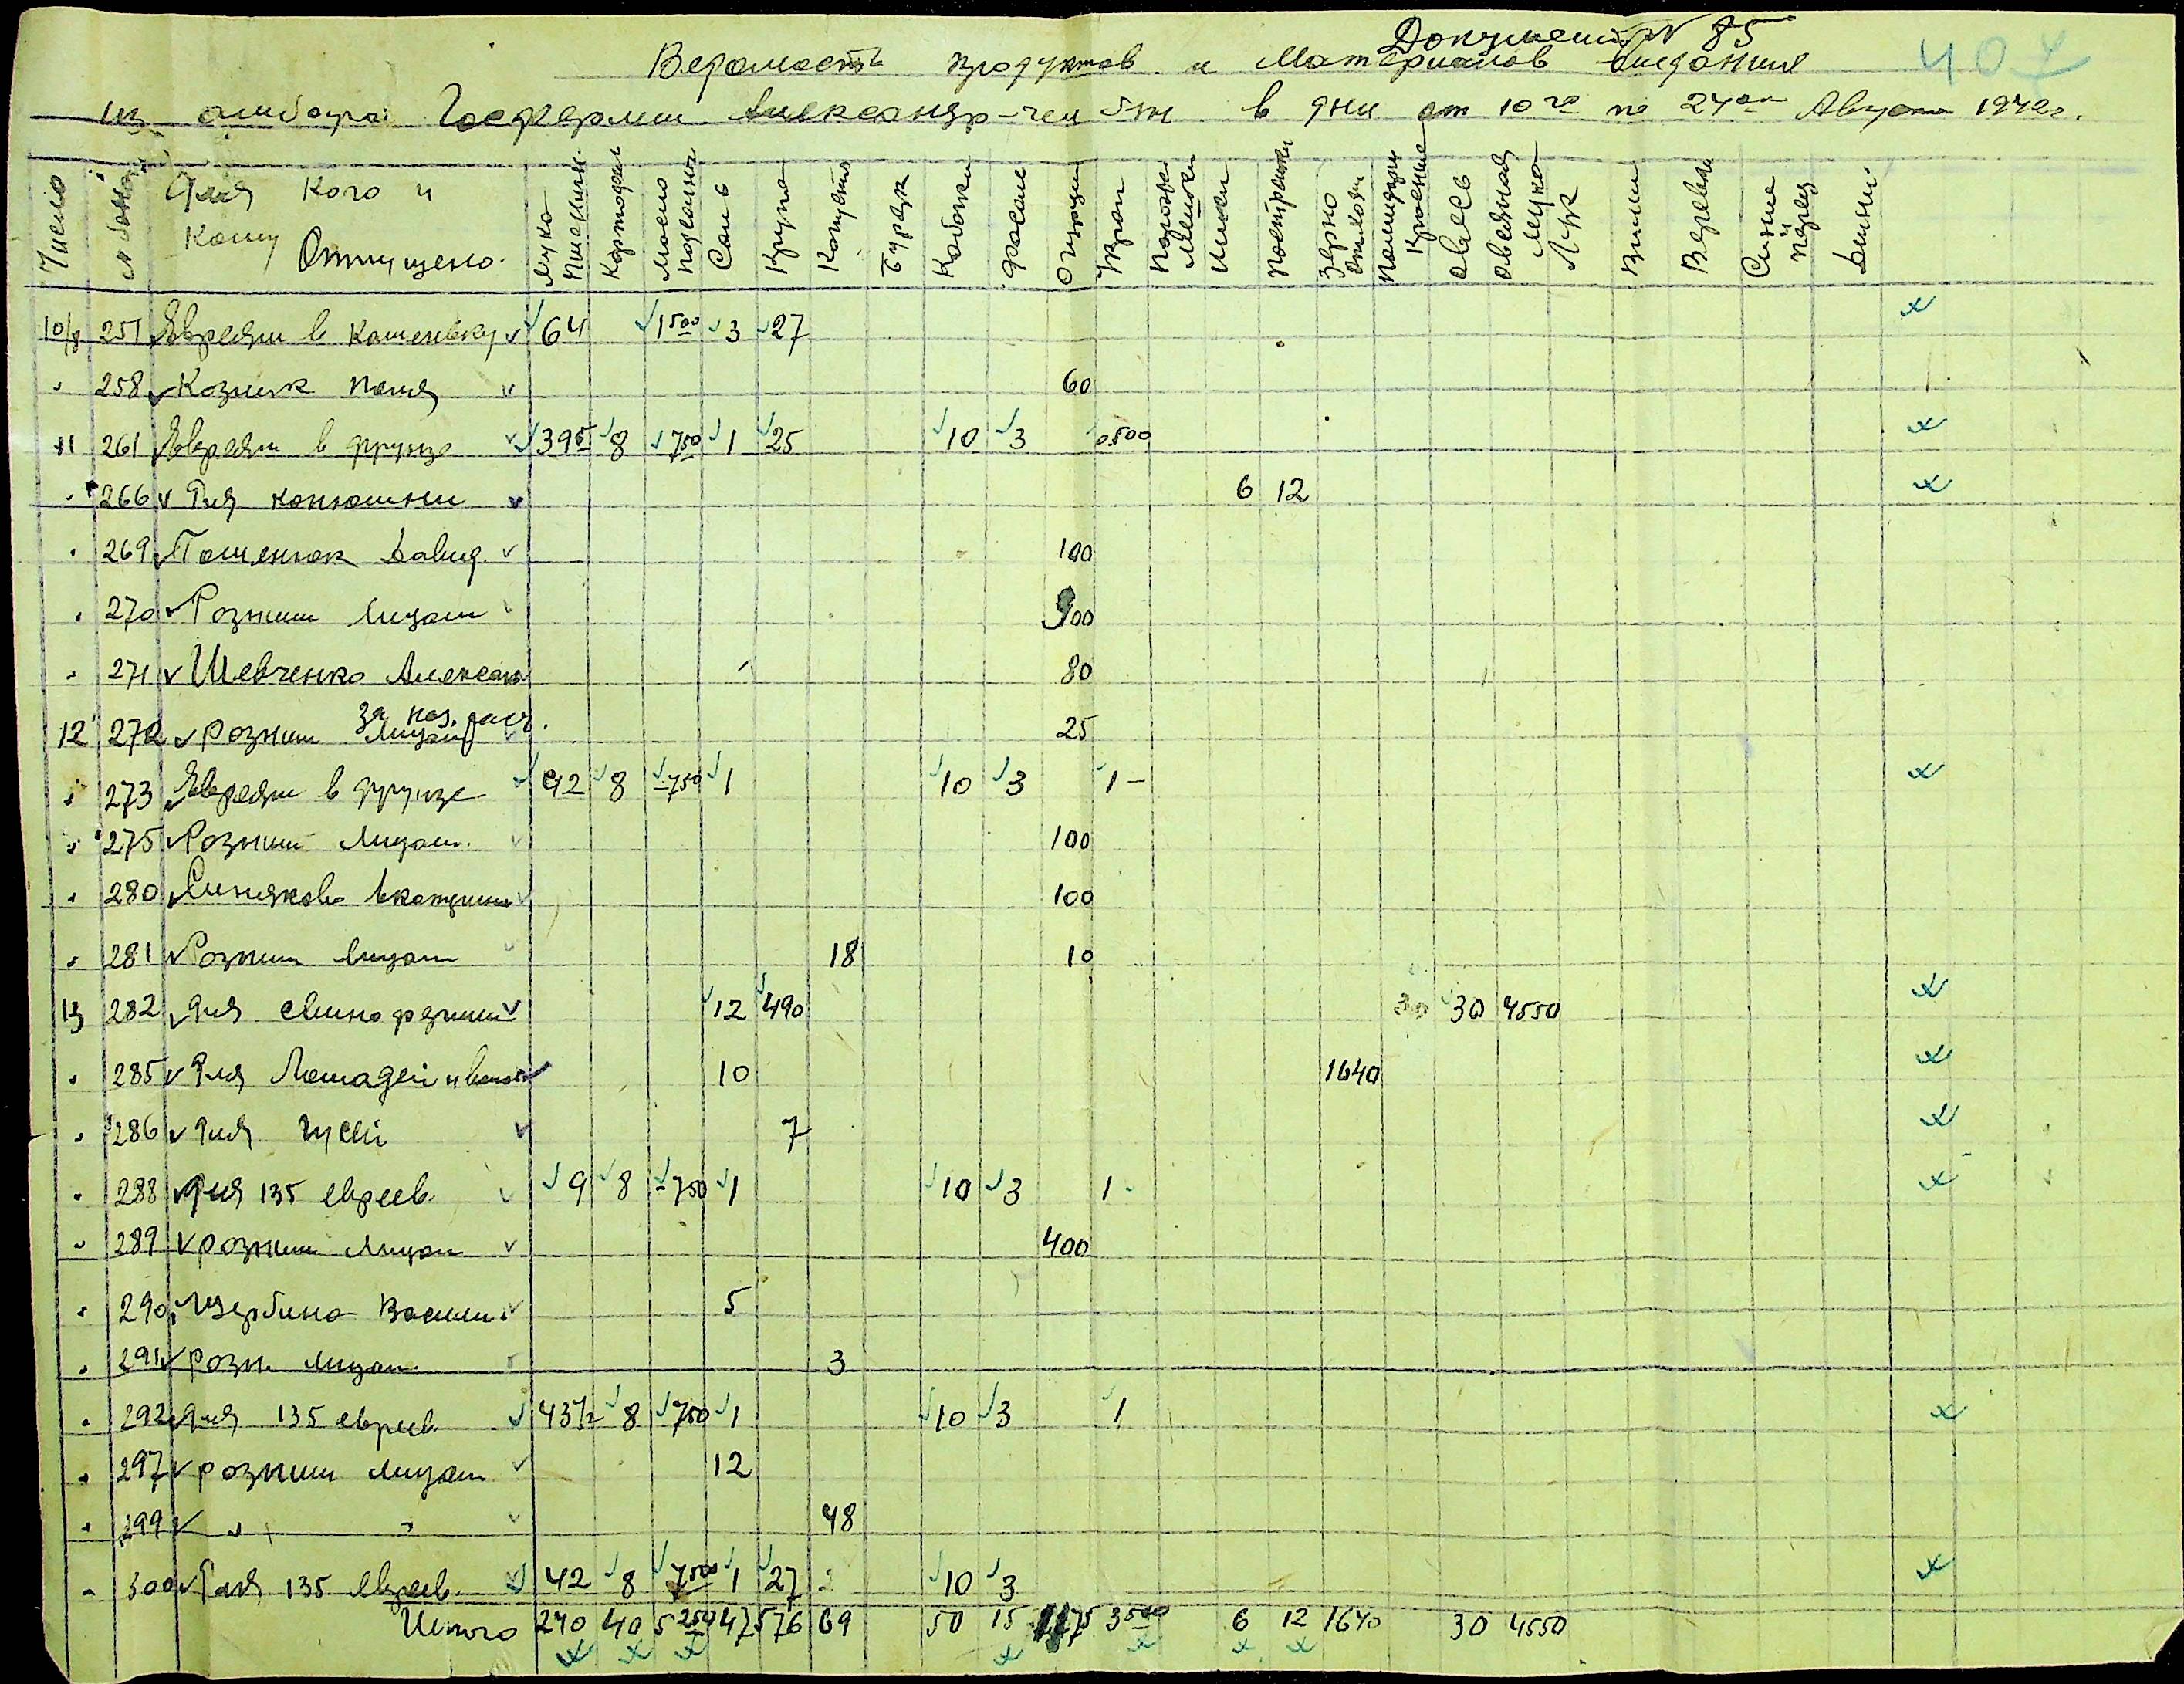 Документ N 85
Ведомость продуктов и Материалов выдания 404
из амбара Госфермы Александр- в дни от 10го по 24ое Августа 1942г.
Число N Для Кого и Кому Отпущено. Мука Пшенич. Картофель Масло Подсолн. Соль Крупа Капуста Буряк Кабачки Фасоль Огурцы Укроп Порожн. Мешки Шили Постромки Зерно Отходы Помидоры Красные Овес Овсяная Мука Лук Вилки Веревки Синие Перец Дыни.
10/8 257 Евреям в Каменку 64 1500 3 27
" 258 Козник 60
11 261 Евреям в Фрунзе 395 8 750 1 25 10 3 0.500
" 266 Для конюшни 6 12
" 269 Давид. 100
" 270 Розным лицам 900
" 271 Шевченко Александ 80
12 272 Розным лицам за нал. расч. 25
" 273 Евреям в Фрунзе 42 8 -750 1 10 3 1 -
" 275 Розным лицам. 100
" 280 Синякова Екатерина 100
" 281 Розным лицам 18 10
13 282 Для свинофермы 12 490 30 30 4550
" 285 Для Лошадей и 10 1640
" 286 Для гусей 7
" 288 Для 135 евреев. 9 8 -750 1 10 3 1 -
" 289 розным лицам 400
" 290 Щербина Васили. 5
" 291 розн. лицам. 3
" 292 Для 135 евреев. 43½ 8 750 1 10 3 1
" 297 розным лицам 12
" 299 " " 48
" 300 Для 135 евреев. 42 8 7500 1 27 10 3
Итого 240 40 5250 47 576 69 50 15 3500 6 12 1640 30 4550